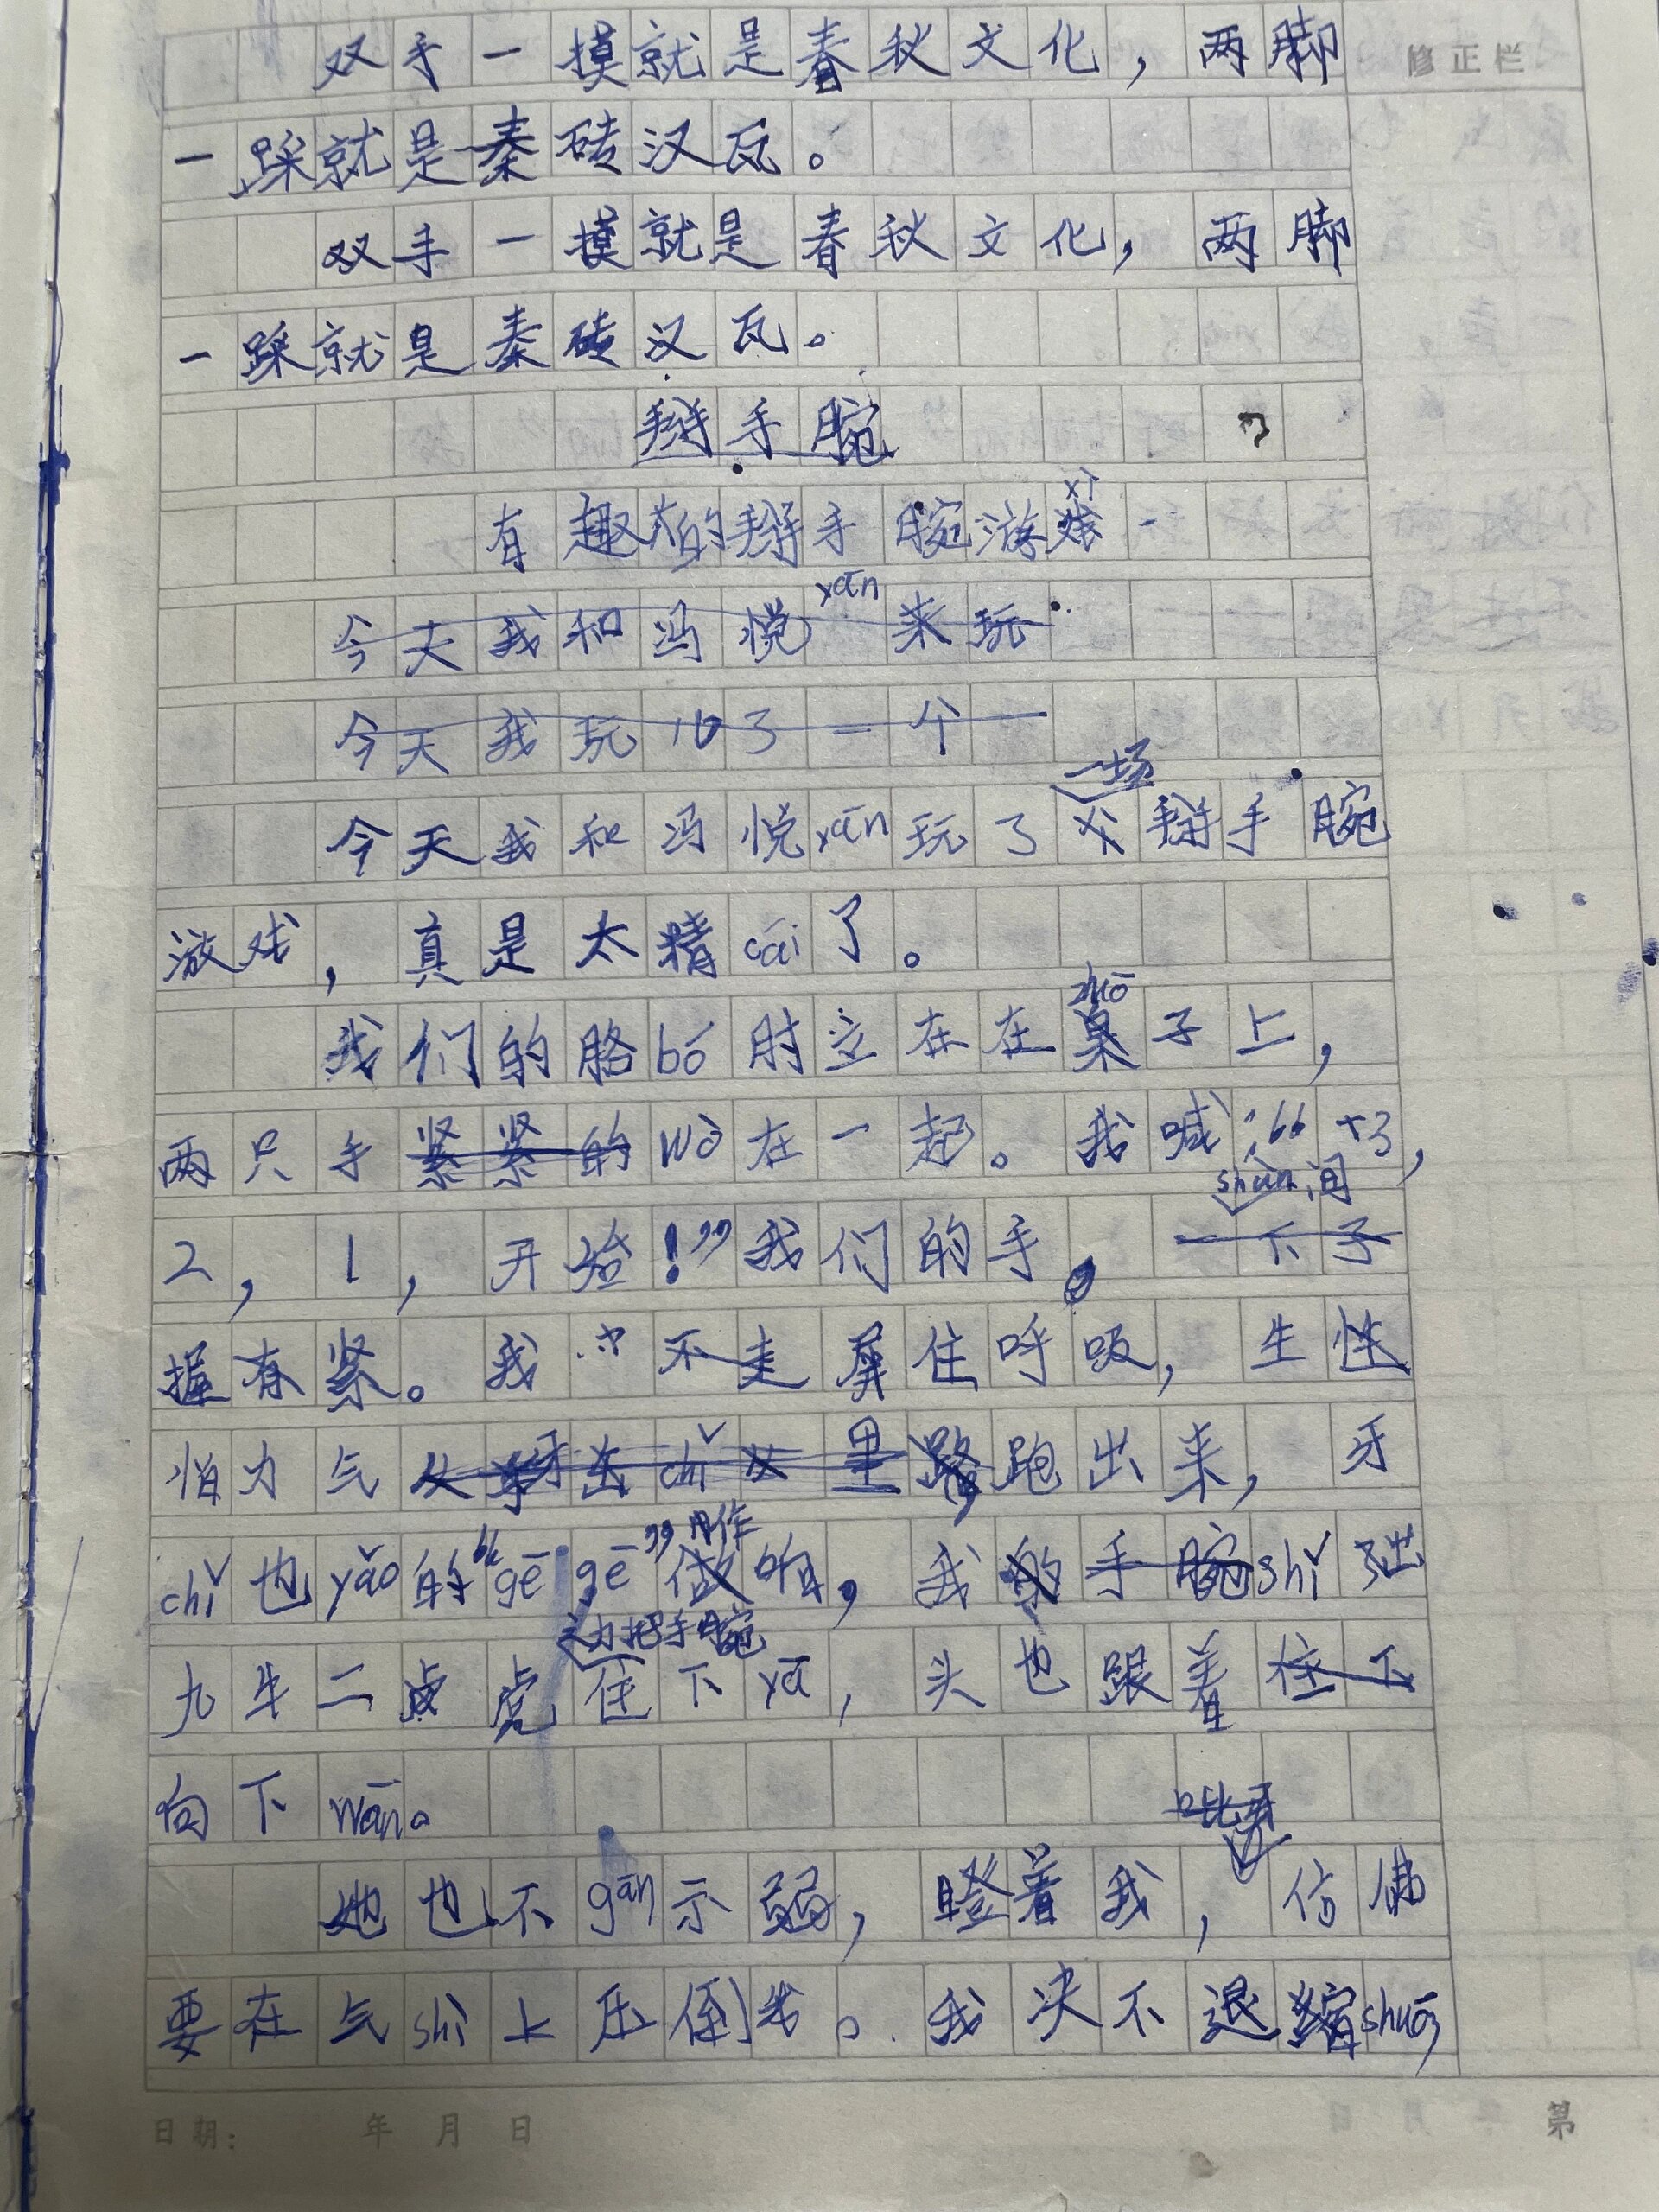 双手一摸就是春秋文化，两脚
修正栏
一踩就是秦砖汉瓦。
双手一摸就是春秋文化，两脚
一踩就是秦砖汉瓦。
掰手腕
有趣的掰手腕游戏
xì
今天我和冯悦yān来玩
今天我玩了一个
一场
今天我和冯悦yān玩了掰手腕
游戏，真是太精cǎi了。
zhuō
我们的胳bó肘立在在桌子上，
两只手紧紧的wò在一起。我喊：“3，
shùn间
2，1，开始！”我们的手，一下子
握有紧。我不走屏住呼吸，生性
怕力气从牙齿chǐ里跑出来，牙
chǐ也yǎo的“gē gē”作响，我的手腕shǐ出
边把手腕
九牛二虎住下yā，头也跟着住下
向下wān。
呲牙
她也不gān示弱，瞪着我，仿佛
要在气shì上压倒我。我决不退缩shuō，
日期： 年 月 日
第